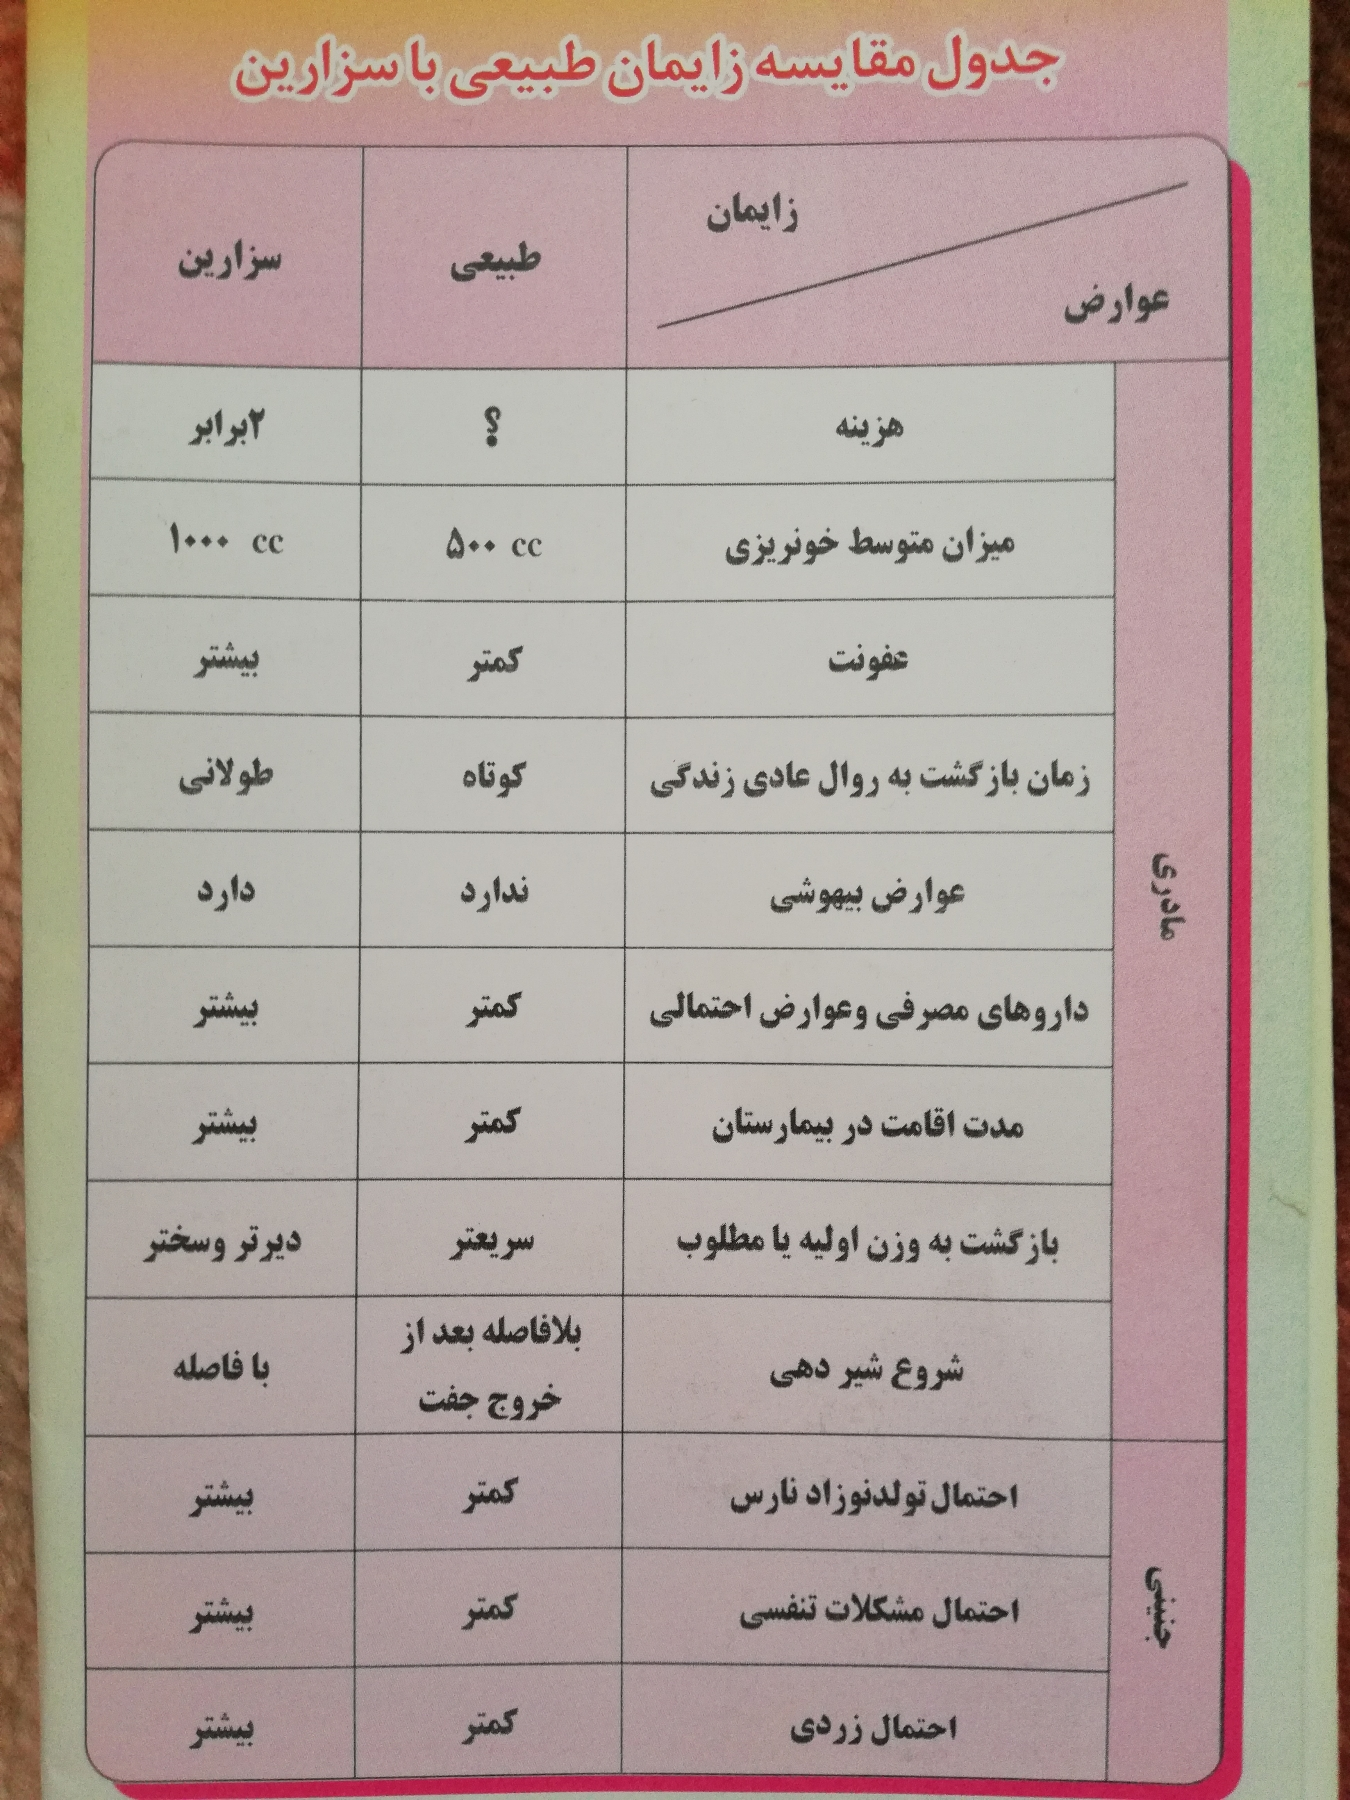 جدول مقایسه زایمان طبیعی با سزارین
زایمان
عوارض
طبیعی
سزارین
مادری
هزینه
؟
۲برابر
میزان متوسط خونریزی
۵۰۰ cc
۱۰۰۰ cc
عفونت
کمتر
بیشتر
زمان بازگشت به روال عادی زندگی
کوتاه
طولانی
عوارض بیهوشی
ندارد
دارد
داروهای مصرفی وعوارض احتمالی
کمتر
بیشتر
مدت اقامت در بیمارستان
کمتر
بیشتر
بازگشت به وزن اولیه یا مطلوب
سریعتر
دیرتر وسختر
شروع شیر دهی
بلافاصله بعد از
خروج جفت
با فاصله
جنینی
احتمال تولدنوزاد نارس
کمتر
بیشتر
احتمال مشکلات تنفسی
کمتر
بیشتر
احتمال زردی
کمتر
بیشتر